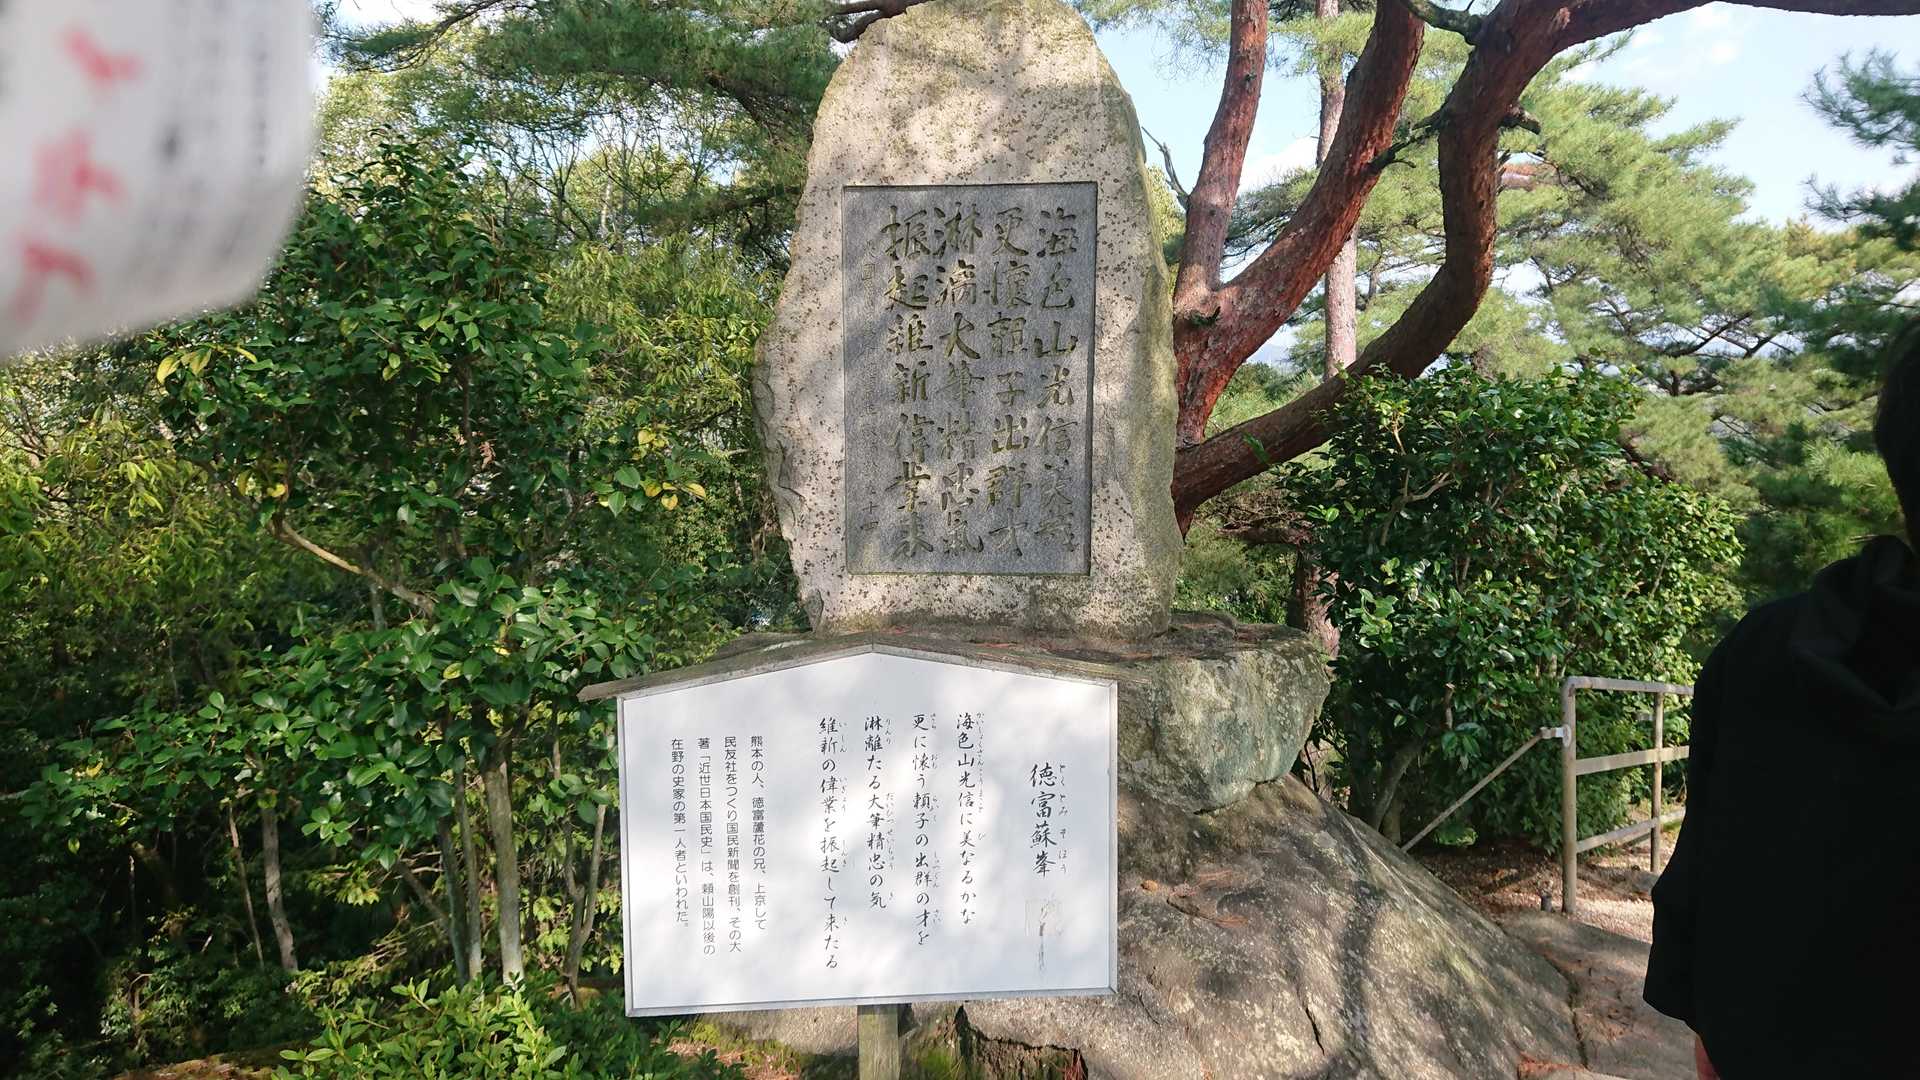 海色山光信美哉
更懐頼子出群才
淋漓大筆精忠氣
振起維新偉業来
徳富蘇峯
とくとみそほう
海色山光信に美なるかな
更に懐う頼子の出群の才を
淋離たる大筆精忠の気
維新の偉業を振起して来たる
熊本の人、徳富蘆花の兄、上京して
民友社をつくり国民新聞を創刊、その大
著「近世日本国民史」は、頼山陽以後の
在野の史家の第一人者といわれた。